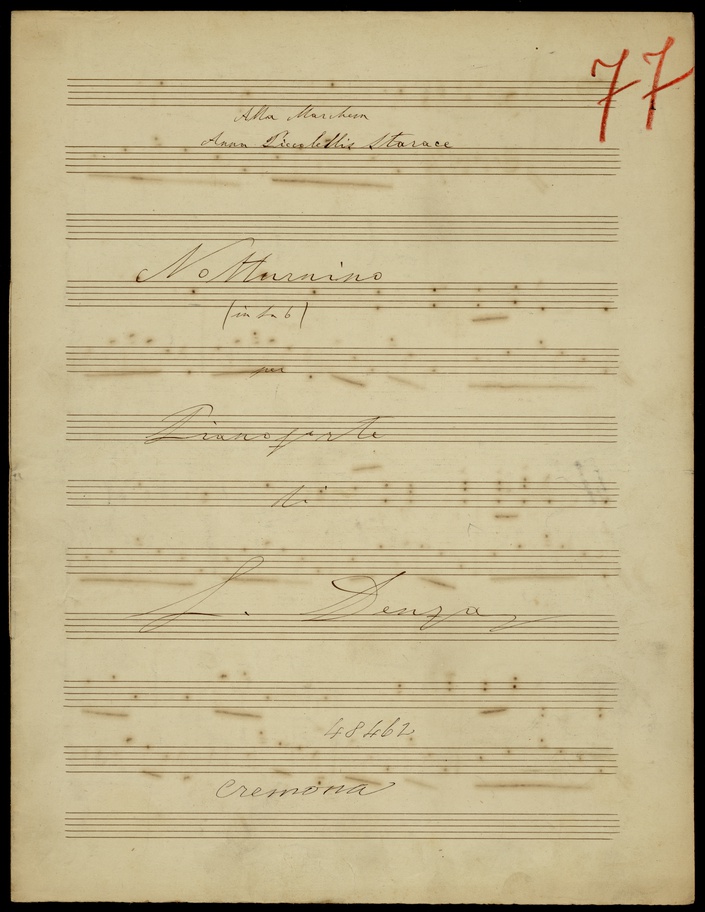 77
Alla Marchesa
Anna Piccolellis Starace
Notturnino
(in La b)
per
Pianoforte
di
L. Denza
48462
Cremona